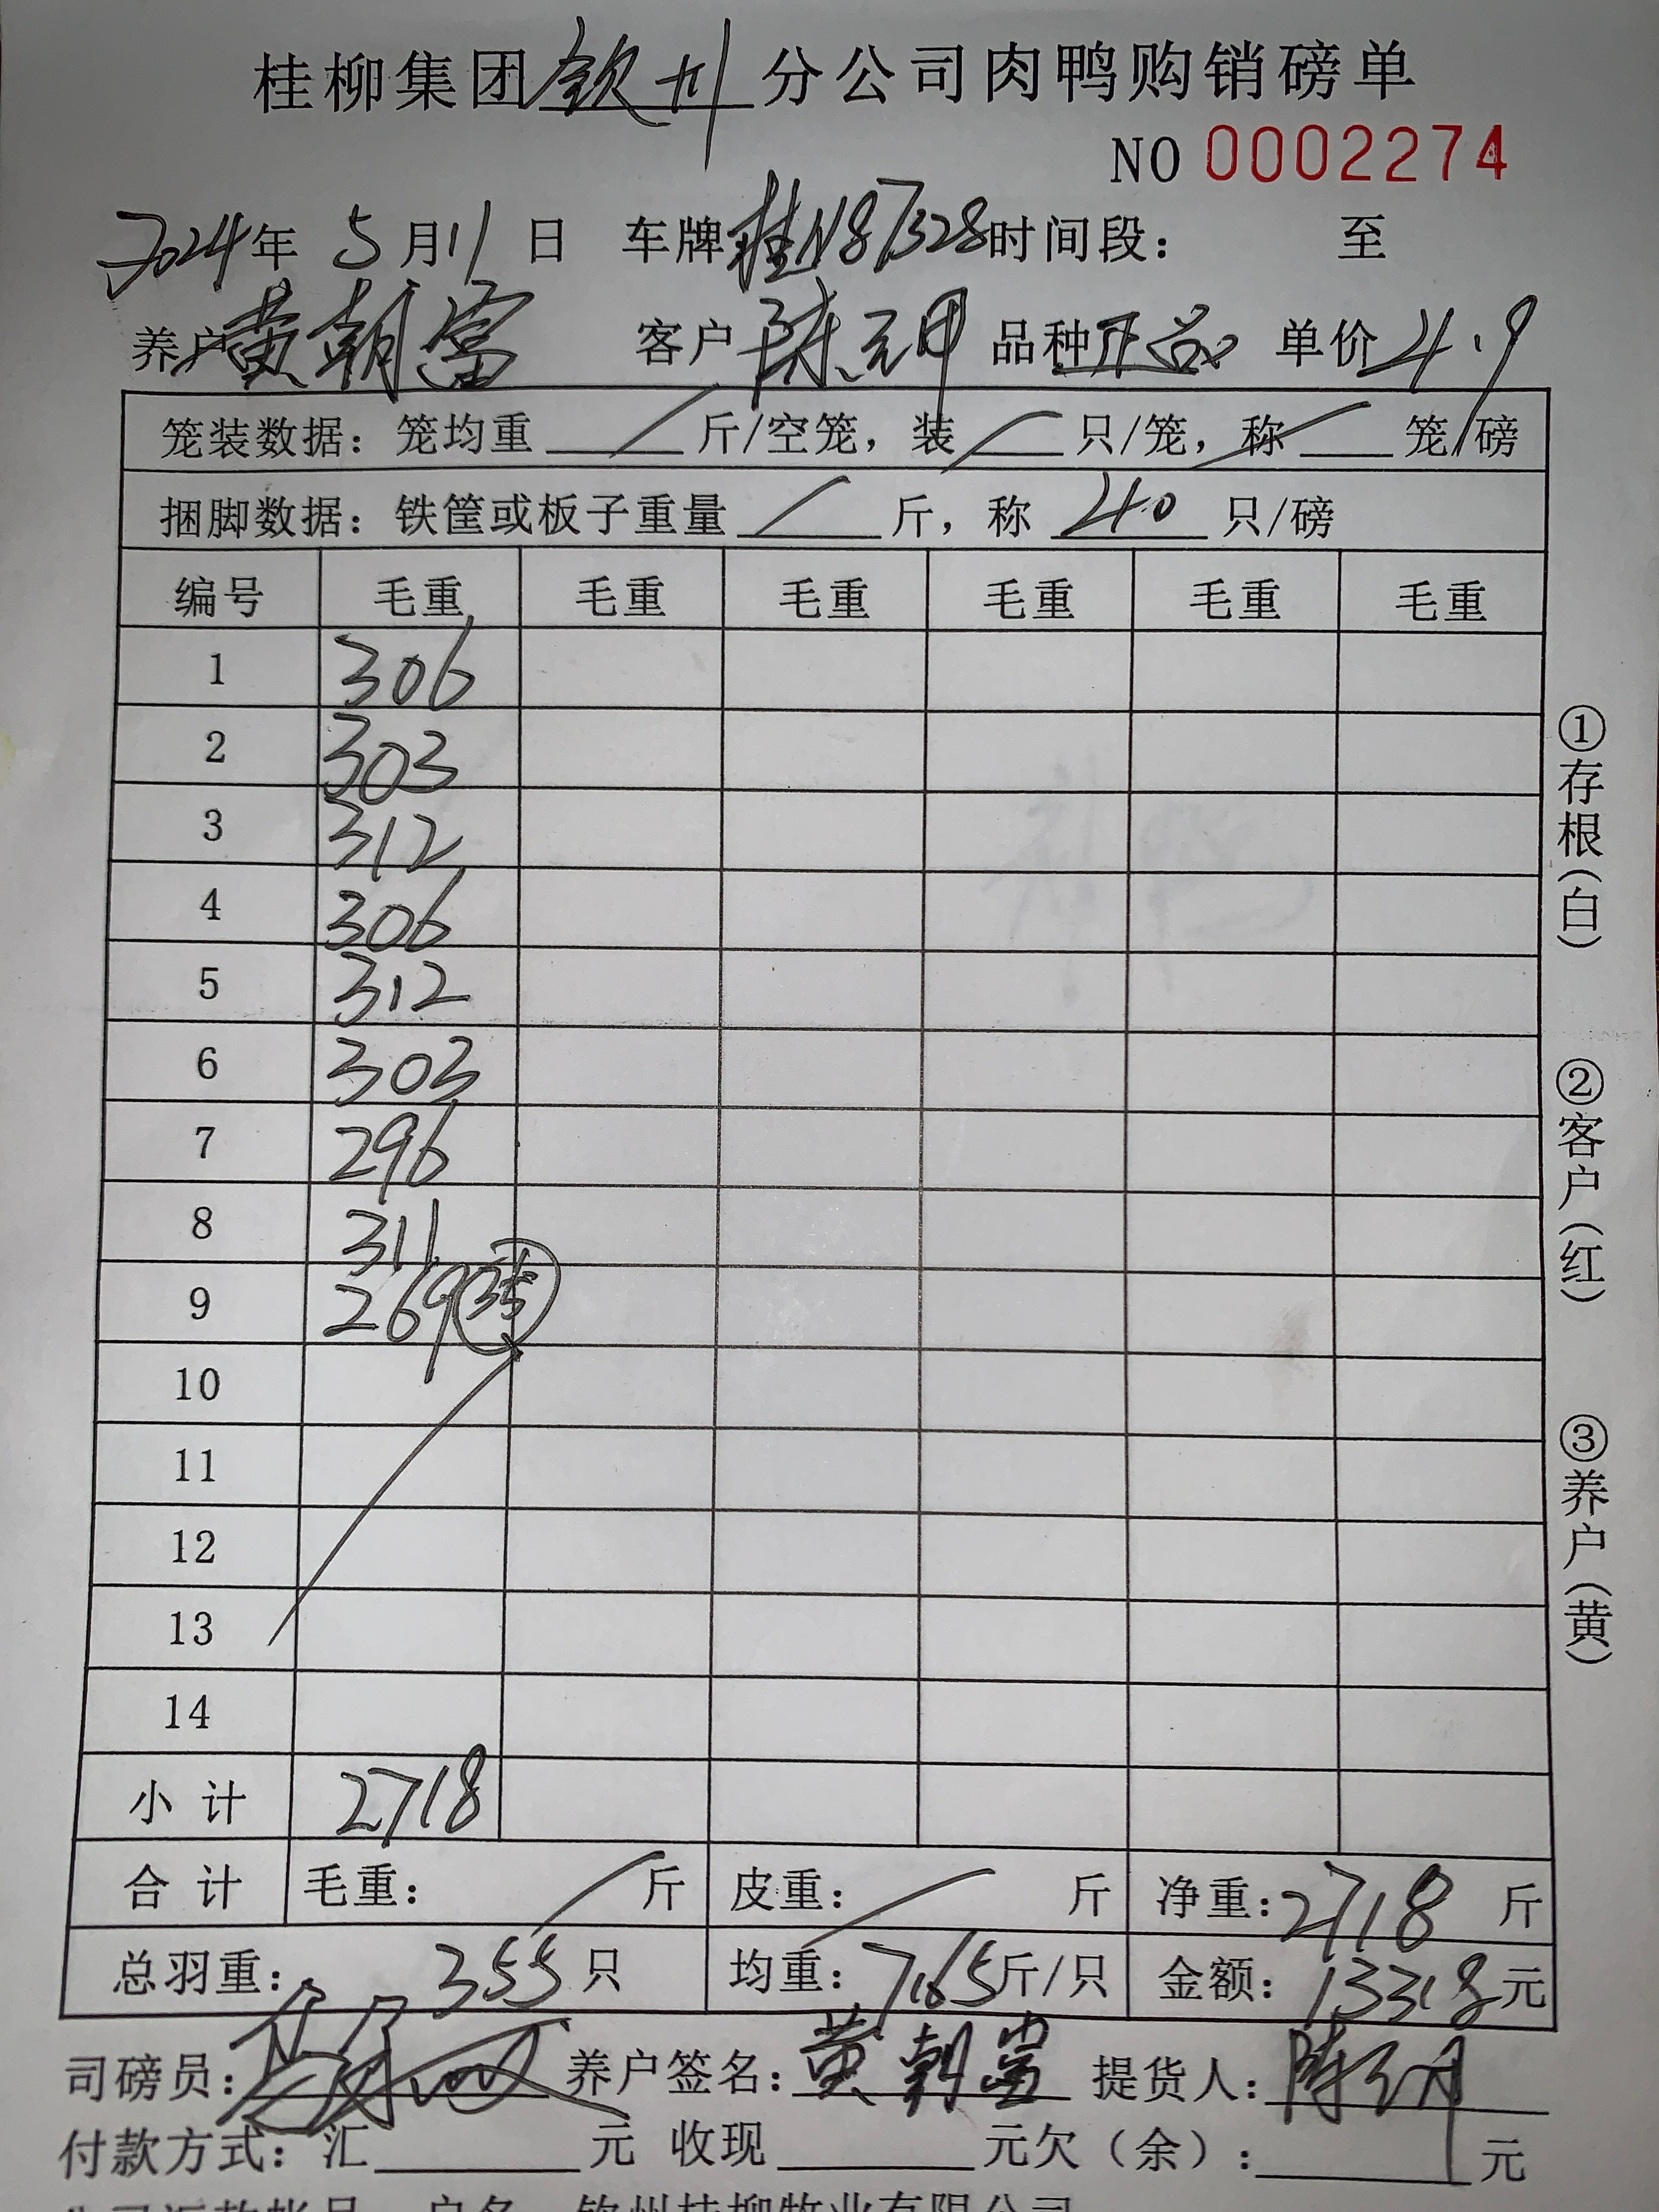 桂柳集团钦州分公司肉鸭购销磅单
NO 0002274
2024年 5月11日 车牌桂N87328时间段： 至
养户黄朝富 客户陈元甲 品种正品 单价4.9
笼装数据：笼均重 / 斤/空笼，装 / 只/笼，称 / 笼/磅
捆脚数据：铁筐或板子重量 / 斤，称 40 只/磅
编号 毛重 毛重 毛重 毛重 毛重 毛重
1 306
2 303
3 312
4 306
5 312
6 303
7 296
8 311
9 269 35
10
11
12
13
14
小计 2718
合计 毛重： / 斤 皮重： / 斤 净重：2718 斤
总羽重：355只 均重：7.65斤/只 金额：13318元
司磅员： 养户签名：黄朝富 提货人：
付款方式：汇 元 收现 元欠（余）： 元
①存根（白）
②客户（红）
③养户（黄）